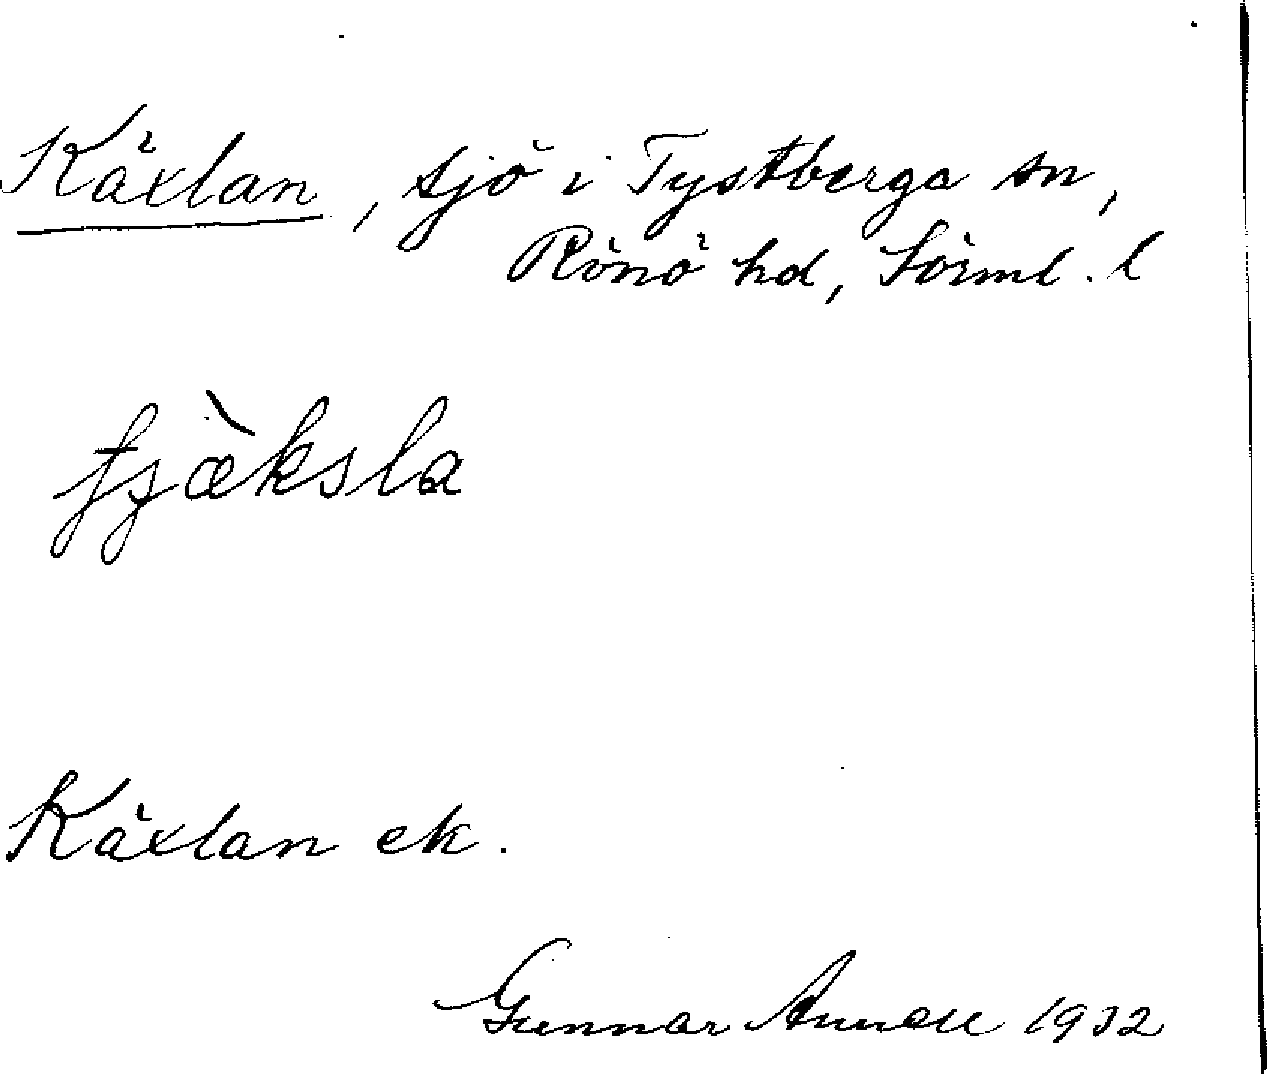 Käxlan, sjö i Tystberga sn,
Rönö hd, Söiml. l
fjæ̀ksla
Käxlan ek.
Gunnar Annell 1932